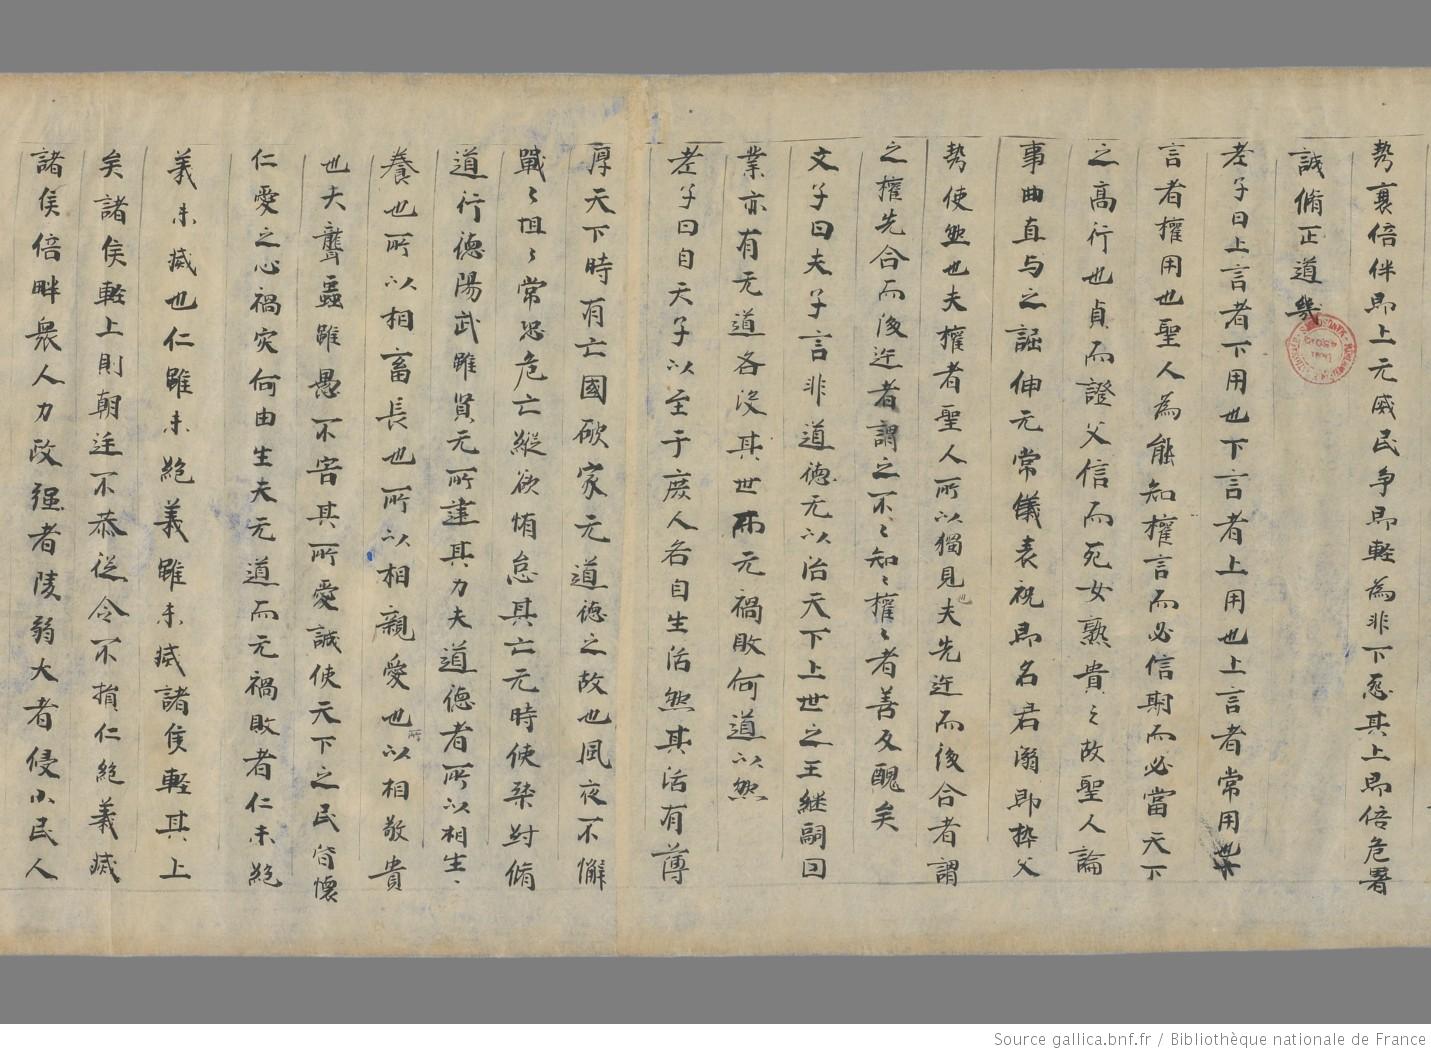 勢襄倍伴即上无威民争即輕為非下怨其上即倍危署
誠脩正道幾
老子曰上言者下用也下言者上用也上言者常用也
言者權用也聖人為能知權言而必信期而必當天下
之高行也貞而證父信而死女熟貴〻之故聖人論
事曲直与之詘伸无常儀表祝即名君溺即捽父
勢使然也夫權者聖人所以獨見也夫先迕而後合者謂
之權先合而後迕者謂之不〻知〻權〻者善反醜矣
文子曰夫子言非道德无以治天下上世之王継嗣曰
業亦有无道各没其世而无禍敗何道以然
老子曰自天子以至于庶人各自生活然其活有薄
厚天下時有亡國破家无道德之故也夙夜不懈
戰〻怚〻常恐危亡縱欲惰怠其亡无時使桀紂脩
道行德陽武雖賢无所建其力夫道德者所以相生
養也所以相畜長也所以相親愛也所以相敬貴
也夫聾蟲雖愚不害其所愛誠使天下之民皆懷
仁愛之心禍災何由生夫无道而无禍敗者仁未絶
義未滅也仁雖未絶義雖未滅諸侯輕其上
矣諸侯輕上則朝迋不恭從令不損仁絶義滅
諸侯倍畔衆人力政强者陵弱大者侵小民人
Source gallica.bnf.fr / Bibliothèque nationale de France